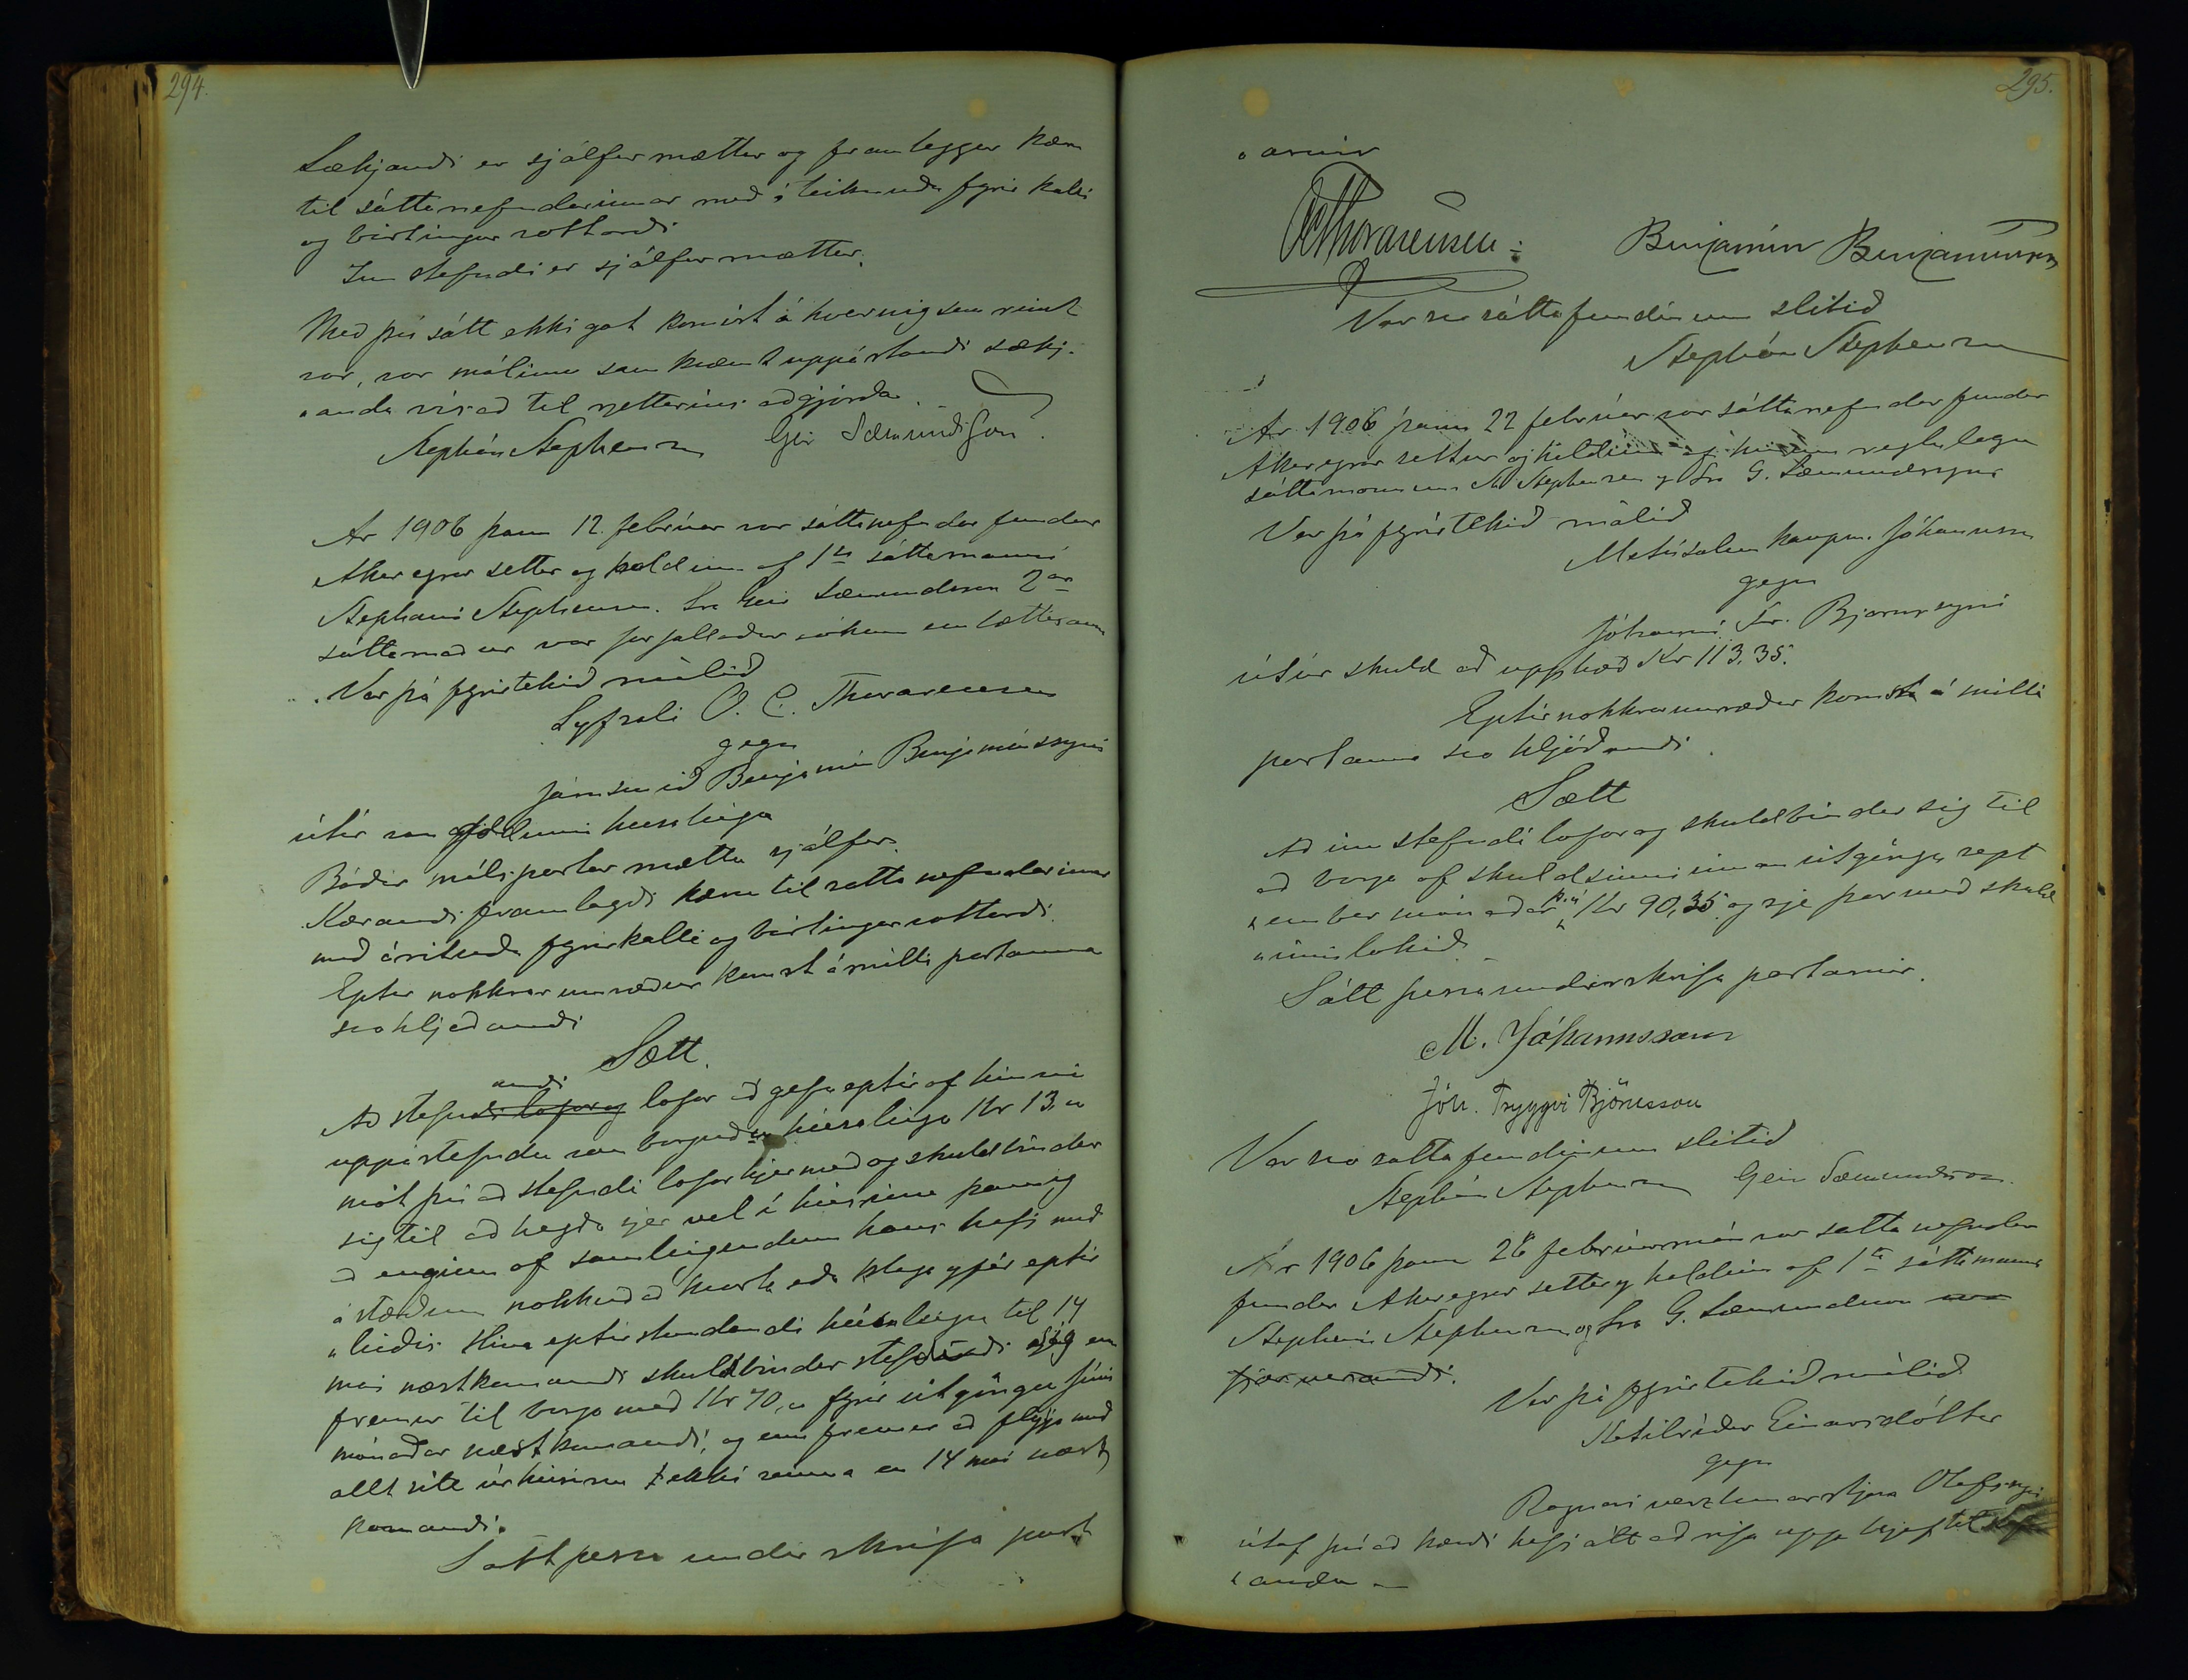 294.
Sækjandi er sjálfur mættur og framleggur kæru
til sáttanefndarinnar með áteiknuðu fyrirkalli
og birtingar vottorði
Inn stefndi er sjálfur mættur.
Með því sátt ekki gat komist á hvernig sem reint
var, var málinu samkvæmt uppástandi sækj-
„anda vísað til rjettarins aðgjörða.
Stephán Stephensen Geir Sæmundsson.
Ar 1906 þann 12. febrúar var sáttanefndar fundur
Akureyrar settur og haldinn af 1ta sáttamanni
Stephani Stephensen. Sra Geir Sæmundsson 2ar
sáttamaður var forfallaður sökum embættisanna
Var þá fyrirtekið málið
Lyfsali O. C. Thorarensen
gegn
járnsmið Benjamín Benjamínssyni
útúr van goldinni húsaleigu
Báðir málspartar mættu sjálfir.
Kærandi framlagði kæru til sattanefndarinnar
með árituðu fyrirkalli og birtingarvottorði.
Eptir nokkrar umræður komst á milli partanna
svohljóðandi
Sætt.
andi
Að stefndi lofar og lofar að gefa eptir af hinni
uppástefndu van borguðu húsaleigu Kr 13,„
mót því að stefndi lofar hjermeð og skuldbindur
sig til að hegða sjer vel í húsinu þannig
að enginn af samleigendum hans hafi með
ástæðum nokkuð að kvarta eða klaga yfir eptir
„leiðis Hina eptirstandandi húsaleigu til 14
mai næstkomandi skuldbindur stefndi sig enn
fremur til borga með Kr 70,„ fyrir útgöngu júní
mánaðar næstkomandi, og enn fremur að flytja með
allt sitt úr húsinu ekki seinna en 14 mai næst
komandi.
Satt þessa undir skrifa part
295.
„arnir
OCThorarensen: Benjamín Benjamínsson
Var svo sáttafundinum slitið
Stephán Stephensen
Ar 1906 þann 22 febrúar var sáttanefndar fundur
Akureyrar settur og haldinn af hinum reglulegu
sáttamönnum St Stephensen og Sra G. Sæmundssyni
Var þá fyrirtekið málið
Metúsalem kaupm. Jóhannsson
gegn
Jóhanni Tr. Bjarnarsyni
útúr skuld að upphæð Kr 113,35.
Eptir nokkrar umræður komst á milli
partanna svo hljóðandi.
Sætt
Að inn stefndi lofar og skuldbindur sig til
að borga af skuld sinni innan útgöngu sept
„ember mánaðar þ.á. Kr 90,35 og sje þar með skuld
„inni lokið.
Sátt þessa undirskrifa partarnir.
M. Jóhannsson
Jóh. Tryggvi Björnsson
Var svo sattafundinum slitið
Stephán Stephensen Geir Sæmundsson.
Ar 1906 þann 26 febrúarmán var satta nefndar
fundur Akureyrar settur og haldinn af 1ta sáttamanni
Stephani Stephensen og Sra G. Sæmundsson var
fjærverandi.
Var þá fyrirtekið málið
Ketilríður Einarsdóttir
gegn
Ragnari verzlunarstjóra Olafssyni
útaf því að kærði hafi átt að rífa upp brjef til
„anda –